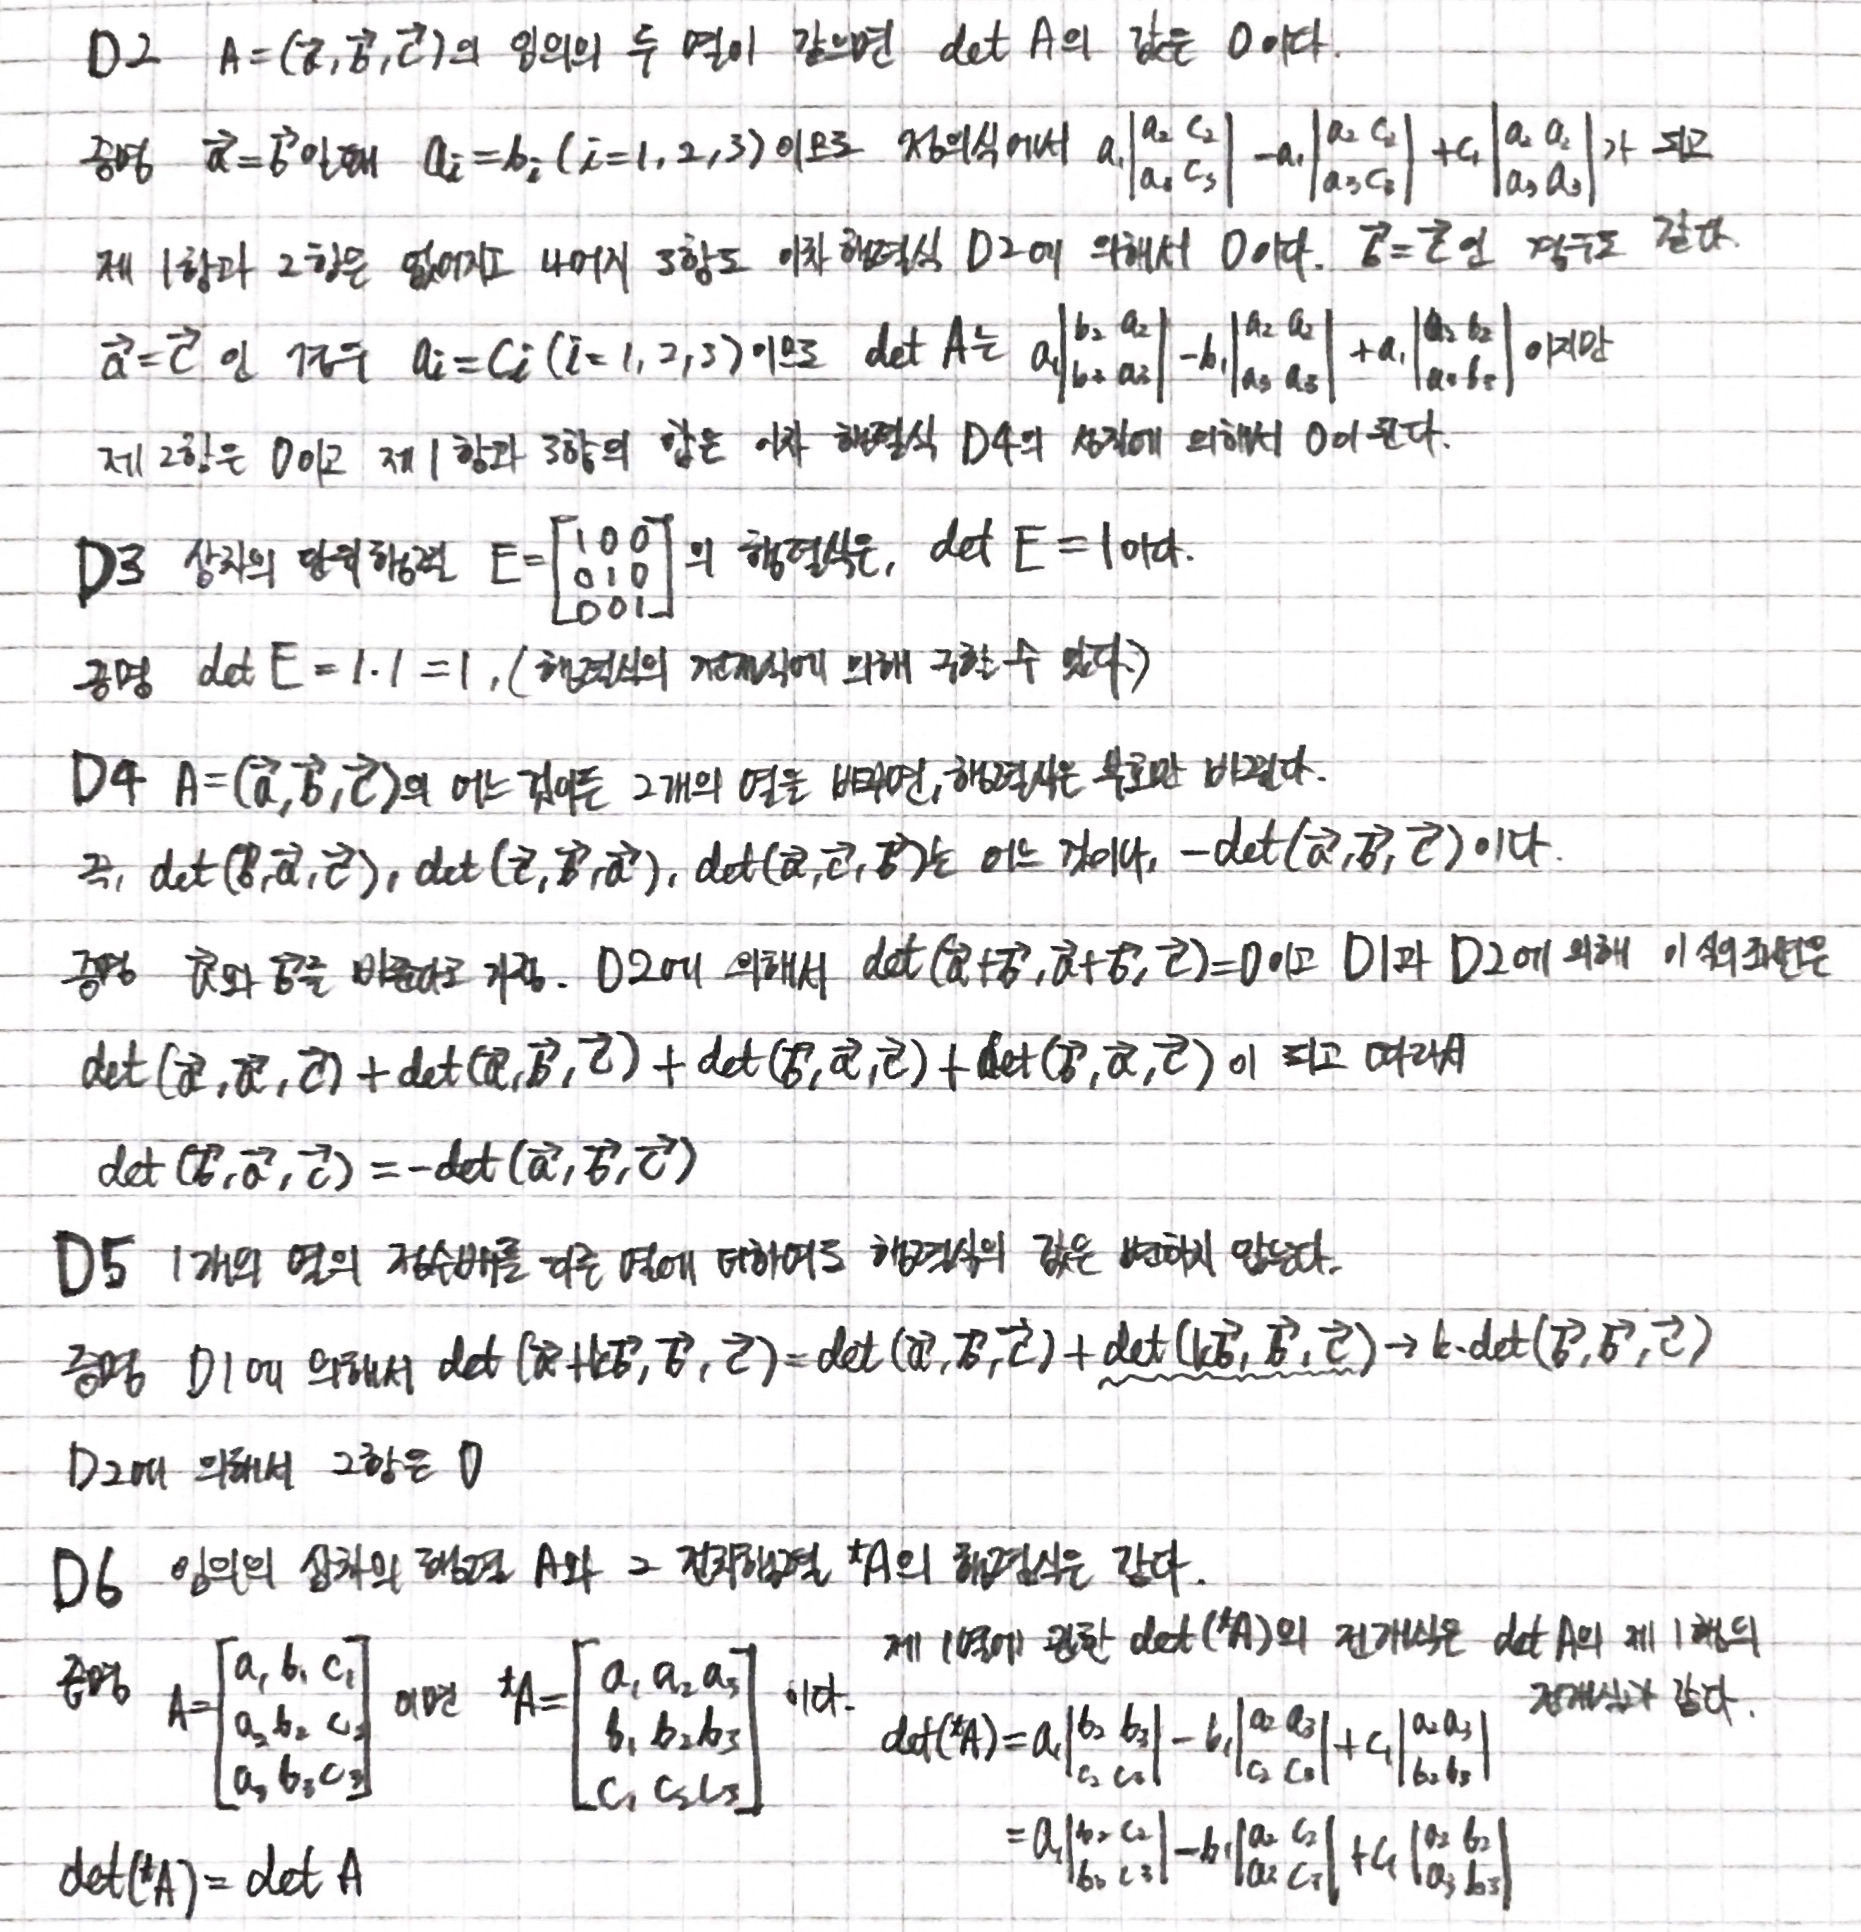 D2 A=(a⃗,b⃗,c⃗)의 임의의 두 열이 같으면 det A의 값은 0이다.
증명 a⃗=b⃗일때 aᵢ=bᵢ(i=1,2,3)이므로 정의식에서 a₁|a₂ c₂; a₃ c₃| -a₁|a₂ c₂; a₃ c₃| +c₁|a₂ a₂; a₃ a₃|가 되고
제 1항과 2항은 없어지고 나머지 3항도 이차 행렬식 D2에 의해서 0이다. b⃗=c⃗인 경우도 같다.
a⃗=c⃗인 경우 aᵢ=cᵢ(i=1,2,3)이므로 det A는 a₁|b₂ a₂; b₃ a₃| -b₁|a₂ a₂; a₃ a₃| +a₁|a₂ b₂; a₃ b₃|이지만
제 2항은 0이고 제 1항과 3항의 합은 이차 행렬식 D4의 성질에 의해서 0이 된다.
D3 삼차의 단위행렬 E=[1 0 0; 0 1 0; 0 0 1]의 행렬식은, det E=1이다.
증명 det E=1·1=1, (행렬식의 전개식에 의해 구할 수 있다.)
D4 A=(a⃗,b⃗,c⃗)의 어느 것이든 2개의 열을 바꾸면, 행렬식은 부호만 바뀐다.
즉, det(b⃗,a⃗,c⃗), det(c⃗,b⃗,a⃗), det(a⃗,c⃗,b⃗)는 어느 것이나, -det(a⃗,b⃗,c⃗)이다.
증명 a⃗와 b⃗를 바꾼다고 가정. D2에 의해서 det(a⃗+b⃗,a⃗+b⃗,c⃗)=0이고 D1과 D2에 의해 이 식의 좌변은
det(a⃗,a⃗,c⃗)+det(a⃗,b⃗,c⃗)+det(b⃗,a⃗,c⃗)+det(b⃗,a⃗,c⃗)이 되고 따라서
det(b⃗,a⃗,c⃗)=-det(a⃗,b⃗,c⃗)
D5 1개의 열의 정수배를 다른 열에 더하여도 행렬식의 값은 변하지 않는다.
증명 D1에 의해서 det(a⃗+kb⃗,b⃗,c⃗)=det(a⃗,b⃗,c⃗)+det(kb⃗,b⃗,c⃗)→k·det(b⃗,b⃗,c⃗)
D2에 의해서 2항은 0
D6 임의의 삼차의 행렬 A와 그 전치행렬 ᵗA의 행렬식은 같다.
증명 A=[a₁ b₁ c₁; a₂ b₂ c₂; a₃ b₃ c₃] 이면 ᵗA=[a₁ a₂ a₃; b₁ b₂ b₃; c₁ c₂ c₃] 이다.
제 1열에 관한 det(ᵗA)의 전개식은 det A의 제 1행의
전개식과 같다.
det(ᵗA)=a₁|b₂ b₃; c₂ c₃| -b₁|a₂ a₃; c₂ c₃| +c₁|a₂ a₃; b₂ b₃|
=a₁|b₂ c₂; b₃ c₃| -b₁|a₂ c₂; a₂ c₃| +c₁|a₂ b₂; a₃ b₃|
det(ᵗA)=det A